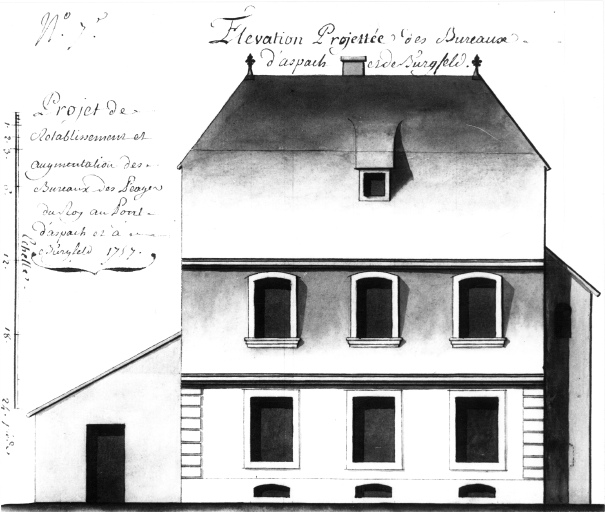 N.º 7.e
Élévation Projettée des Bureaux
d'aspach et de Bürgfeld.
Projet de
Retablissement et
augmentation des
Bureaux des Peages
du Roy au Pont
d'aspach et à
Bürgfeld 1757.
Echelle
1
2
3
6
12
18
24